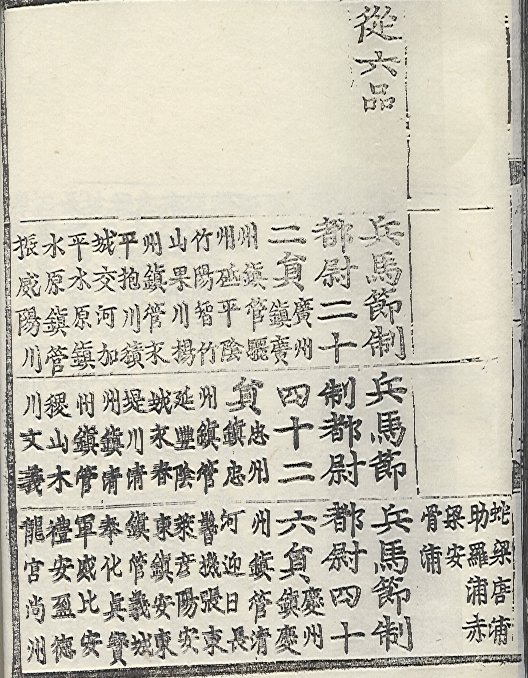 從六品
兵馬節制
都尉二十
二員廣州
鎭廣
州鎭管驪
州砥平陰
竹陽智竹
山果川楊
州鎭管永
平抱川積
城交河加
平水原鎭
水原鎭管
振威陽川
兵馬節
制都尉
四十二
員忠州
鎭忠
州鎭管
延豐陰
城永春
堤川淸
州鎭淸
州鎭管
稷山木
川文義
蛇梁唐浦
助羅浦赤
梁安
骨浦
兵馬節制
都尉四十
六員慶州
鎭慶
州鎭管淸
河迎日長
鬐機張東
萊彦陽安
東鎭安東
鎭管義城
奉化眞寶
軍威比安
禮安盈德
龍宮尙州